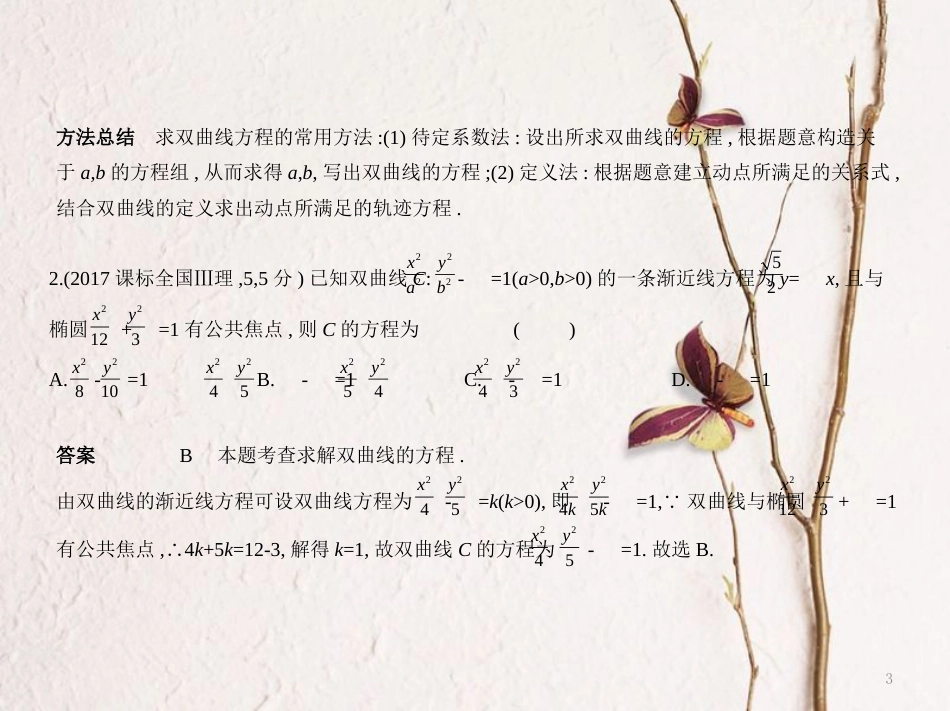 方法总结 求双曲线方程的常用方法 :(1) 待定系数法 : 设出所求双曲线的方程 , 根据题意构造关
于 a,b 的方程组 , 从而求得 a,b, 写出双曲线的方程 ;(2) 定义法 : 根据题意建立动点所满足的关系式 ,
结合双曲线的定义求出动点所满足的轨迹方程 .
2.(2017 课标全国Ⅲ理 ,5,5 分 ) 已知双曲线 C: x²/a² - y²/b² =1(a>0,b>0) 的一条渐近线方程为 y= √5/2 x, 且与
椭圆 x²/12 + y²/3 =1 有公共焦点 , 则 C 的方程为 ( )
A. x²/8 - y²/10 =1 B. x²/4 - y²/5 =1 C. x²/5 - y²/4 =1 D. x²/4 - y²/3 =1
答案 B 本题考查求解双曲线的方程 .
由双曲线的渐近线方程可设双曲线方程为 x²/4 - y²/5 =k(k>0), 即 x²/4k - y²/5k =1,∵ 双曲线与椭圆 x²/12 + y²/3 =1
有公共焦点 ,∴4k+5k=12-3, 解得 k=1, 故双曲线 C 的方程为 x²/4 - y²/5 =1. 故选 B.
3